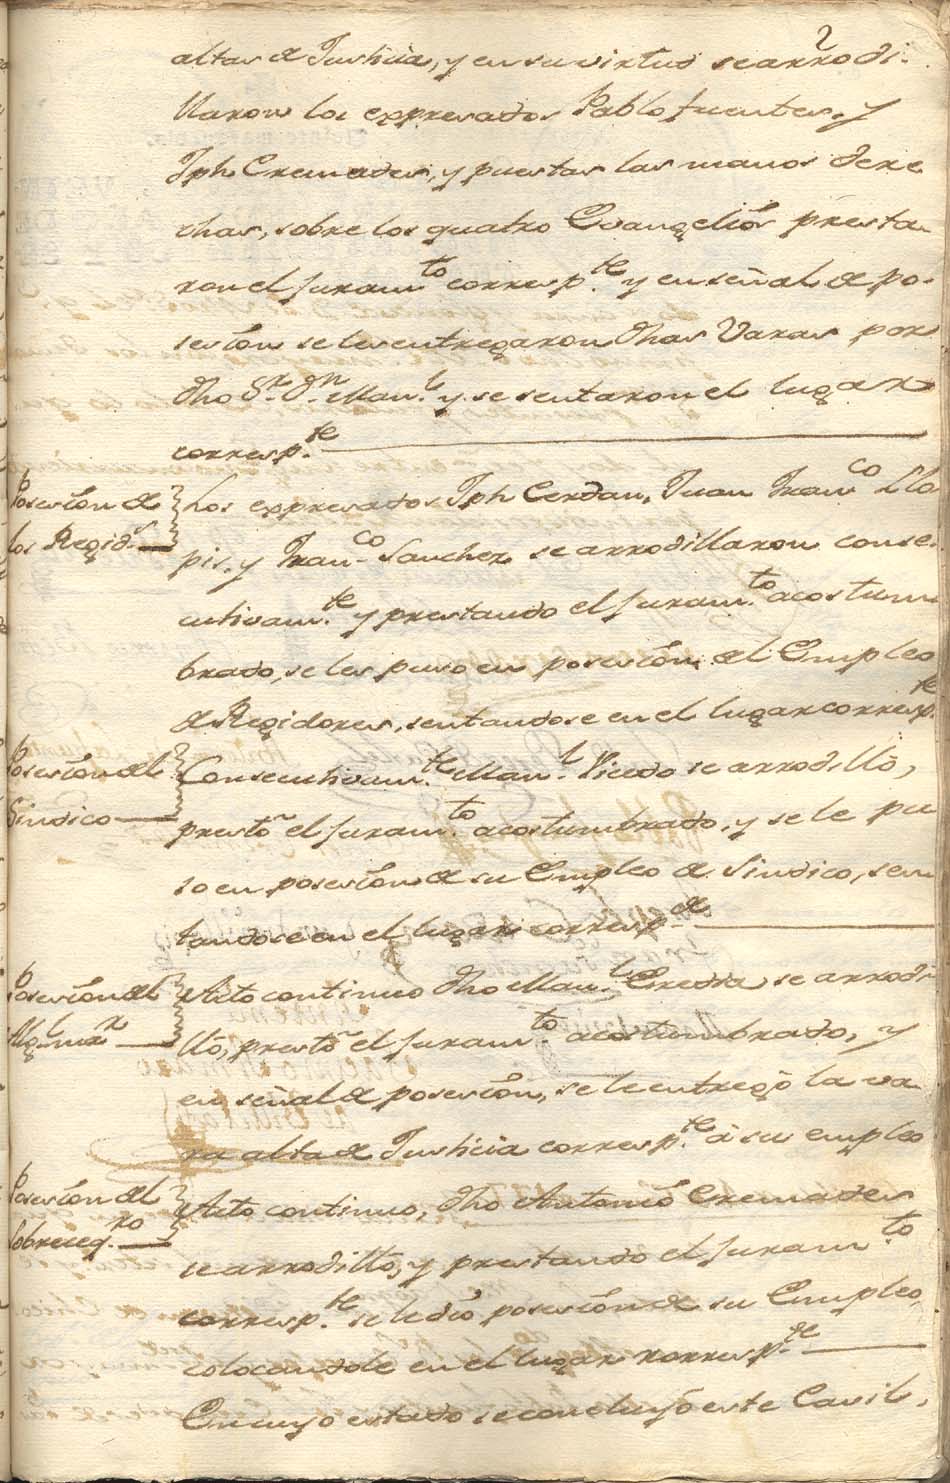 2
altas de Justicia, y en su virtud se arrodi-
llaron los expresados Pablo fuentes, y
Jph Cremades, y puestas las manos dere
chas, sobre los quatro Evangelios presta-
ron el Juram.to corresp.te y en señal de po-
sesion se les entregaron dhas Varas por
dho S.r D.n Man.l y se sentaron el lugar
corresp.te
Posesion de
los Regid.s
Los expresados Jph Cerdan, Juan Fran.co Llo
pis, y Fran.co Sanchez se arrodillaron conse-
cutivam.te y prestando el Juram.to acostum
brado, se les puso en posesion del Empleo
de Regidores, sentandose en el lugar corresp.te
Posesion del
Sindico
Consecutivam.te Man.l Vicedo se arrodilló,
prestó el Juram.to acostumbrado, y se le pu
so en posesion de su Empleo de Sindico, sen
tandose en el lugar corresp.te
Posesion del
Alg.l m.r
Acto continuo dho Man.l Credia se arrodi
lló, prestó el Juram.to acostumbrado, y
en señal de posesion, se le entregó la va
ra alta de Justicia corresp.te á su empleo
Posesion del
Sobreceq.ro
Acto continuo, dho Antonio Cremades
se arrodilló, y prestando el Juram.to
corresp.te se le dió posesion de su Empleo,
colocandole en el lugar corresp.te
En cuyo estado se concluyó este Cavil-